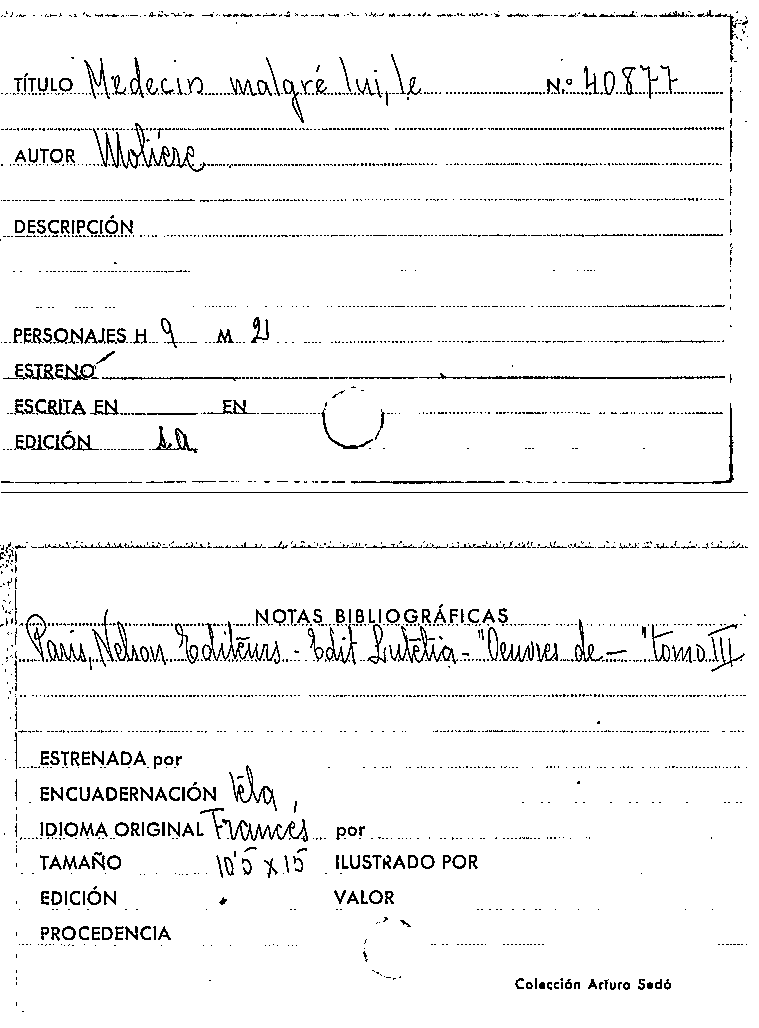 TÍTULO Medecin malgré lui, le N.º 40877
AUTOR Molière
DESCRIPCIÓN
PERSONAJES H 9 M
ESTRENO
ESCRITA EN EN
EDICIÓN s.a.
NOTAS BIBLIOGRÁFICAS
Paris, Nelson Editeurs - Edit Lutetia - "Oeuvres de — " tomo III
ESTRENADA por
ENCUADERNACIÓN tela
IDIOMA ORIGINAL Francés por
TAMAÑO 10'5 x 15 ILUSTRADO POR
EDICIÓN VALOR
PROCEDENCIA
Colección Arturo Sedó